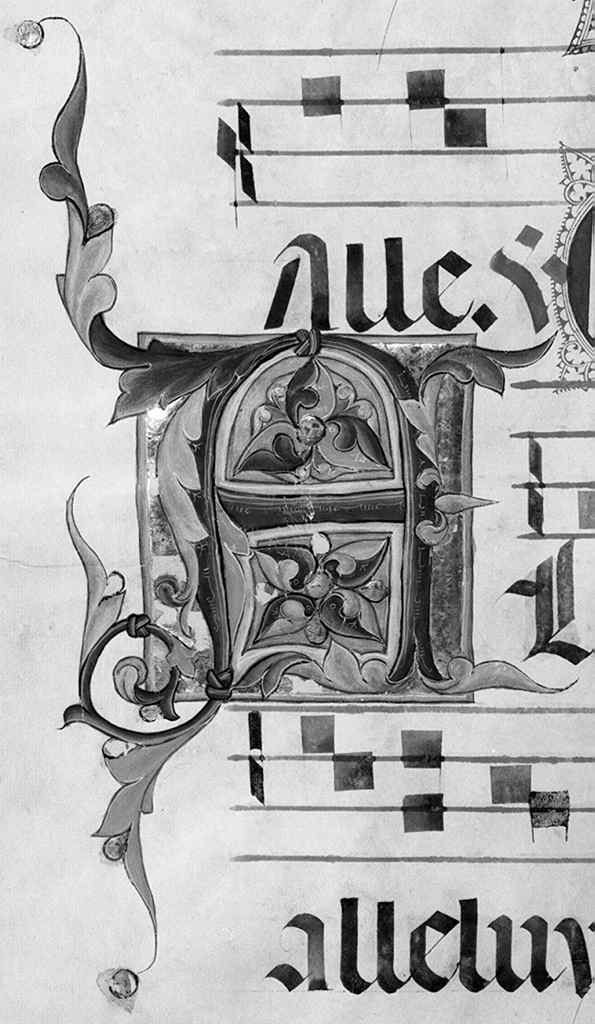 Alle.
A l
alleluy